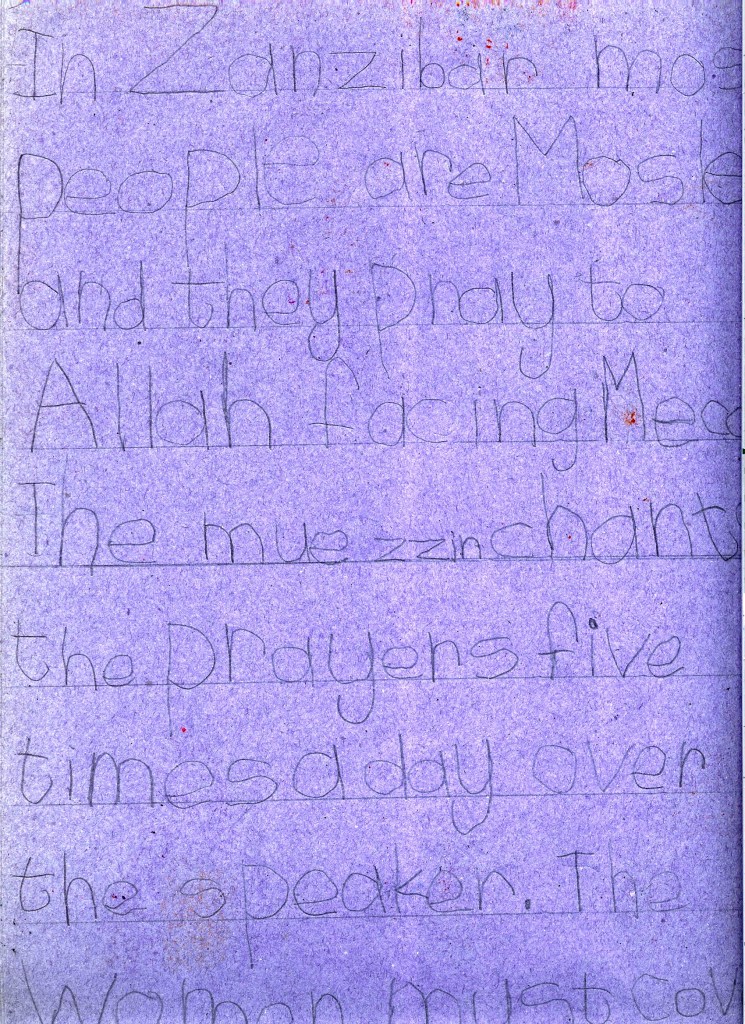 In Zanzibar mos
people are Mosle
and they pray to
Allah facing Mecc
The muezzin chants
the prayers five
times a day over
the speaker. The
Women must cov